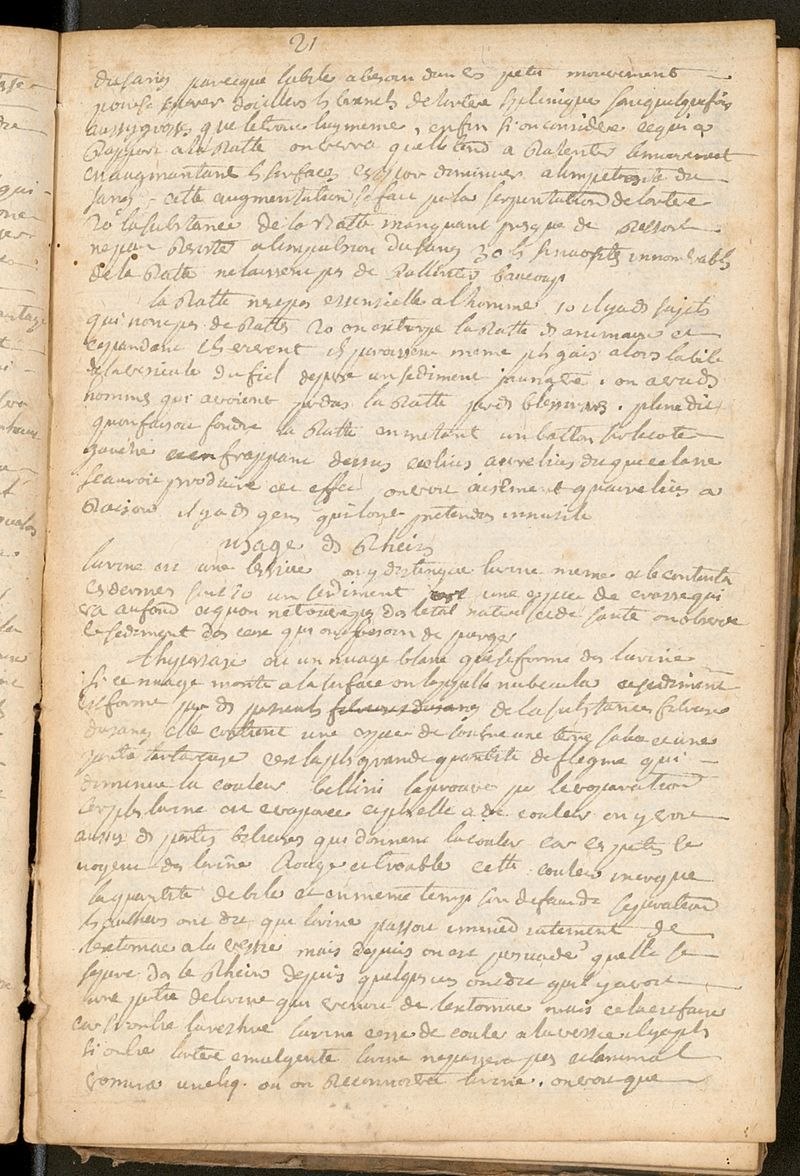 21
du sang parceque la bile a besoin dun petit mouvement
pour se separer dailleurs les branches de lartere splenique sont quelquefois
aussy grosses que le tronc luy meme, enfin si on considere ce qui a
Rapport a la Ratte on verra quelle tend a Ralentir le mouvement
en augmentant les surfaces et pour diminuer a limpetuosité du
sang. cette augmentation se fait par la serpentation de lartere
20 la substance de la Ratte manquant presque de Ressort
ne peut Resister a limpulsion du sang 30 les sinuosités innombrables
de la Ratte ne laissent pas de Rallentir beaucoup
la Ratte nest pas essentielle a lhomme 10 il y a des sujets
qui nont pas de Rattes 20 on extirpe la Ratte des animaux et
cependant ils vivent ils paroissent meme plus gais alors la bile
de la vesicule du fiel depose un sediment jaunatre, on a veu des
hommes qui avoient perdus la Ratte par des blessures. pline dit
quon faisoit fondre la Ratte en metant un batton sur le coté
gauche et en frappant dessus celius aurelius dit que cela ne
scauroit produire cet effet on voit aisement quaurelius a
Raison il y a des gens qui lont pretendus innutile
usage des Rheins
lurine est une lessive on y distingue lurine meme et le contenta
ces derniers sont 20 un sediment une espece de crasse qui
va au fond ce quon ne trouve pas dans letat naturel et de santé on observe
le sediment dans ceux qui ont besoin de purger
lhypostase est un nuage blanc qui se forme dans lurine
si ce nuage monte a la surface on lappelle nubecula ce sediment
est formé par des parties de la substance fibreuse
du sang elle contient une espece de une terre et une
partie tartareuse cest la plus grande quantité de flegme qui
diminue la couleur bellini la prouvé par levaporation
car plus lurine est evaporée et plus elle a de couleur on y voit
aussy des parties bilieuses qui donnent la couleur car ces parties se
noyent dans lurine Rouge et trouble cette couleur marque
la quantité de bile et en meme temps son defaut de separation
les autheurs ont dit que lurine passoit immediatement de
lestomac a la vessie mais depuis on est persuadé quelle se
separe dans le Rheins depuis quelques uns ont dit quil y avoit
une partie de lurine qui venoit de lestomac mais cela est faux
car si on lie lurethre lurine cesse de couler a la vessie il y a plus
si on lie lartere emulgente lurine ne passera pas et lanimal
vomira ou on Reconnoitra lurine. on voit que